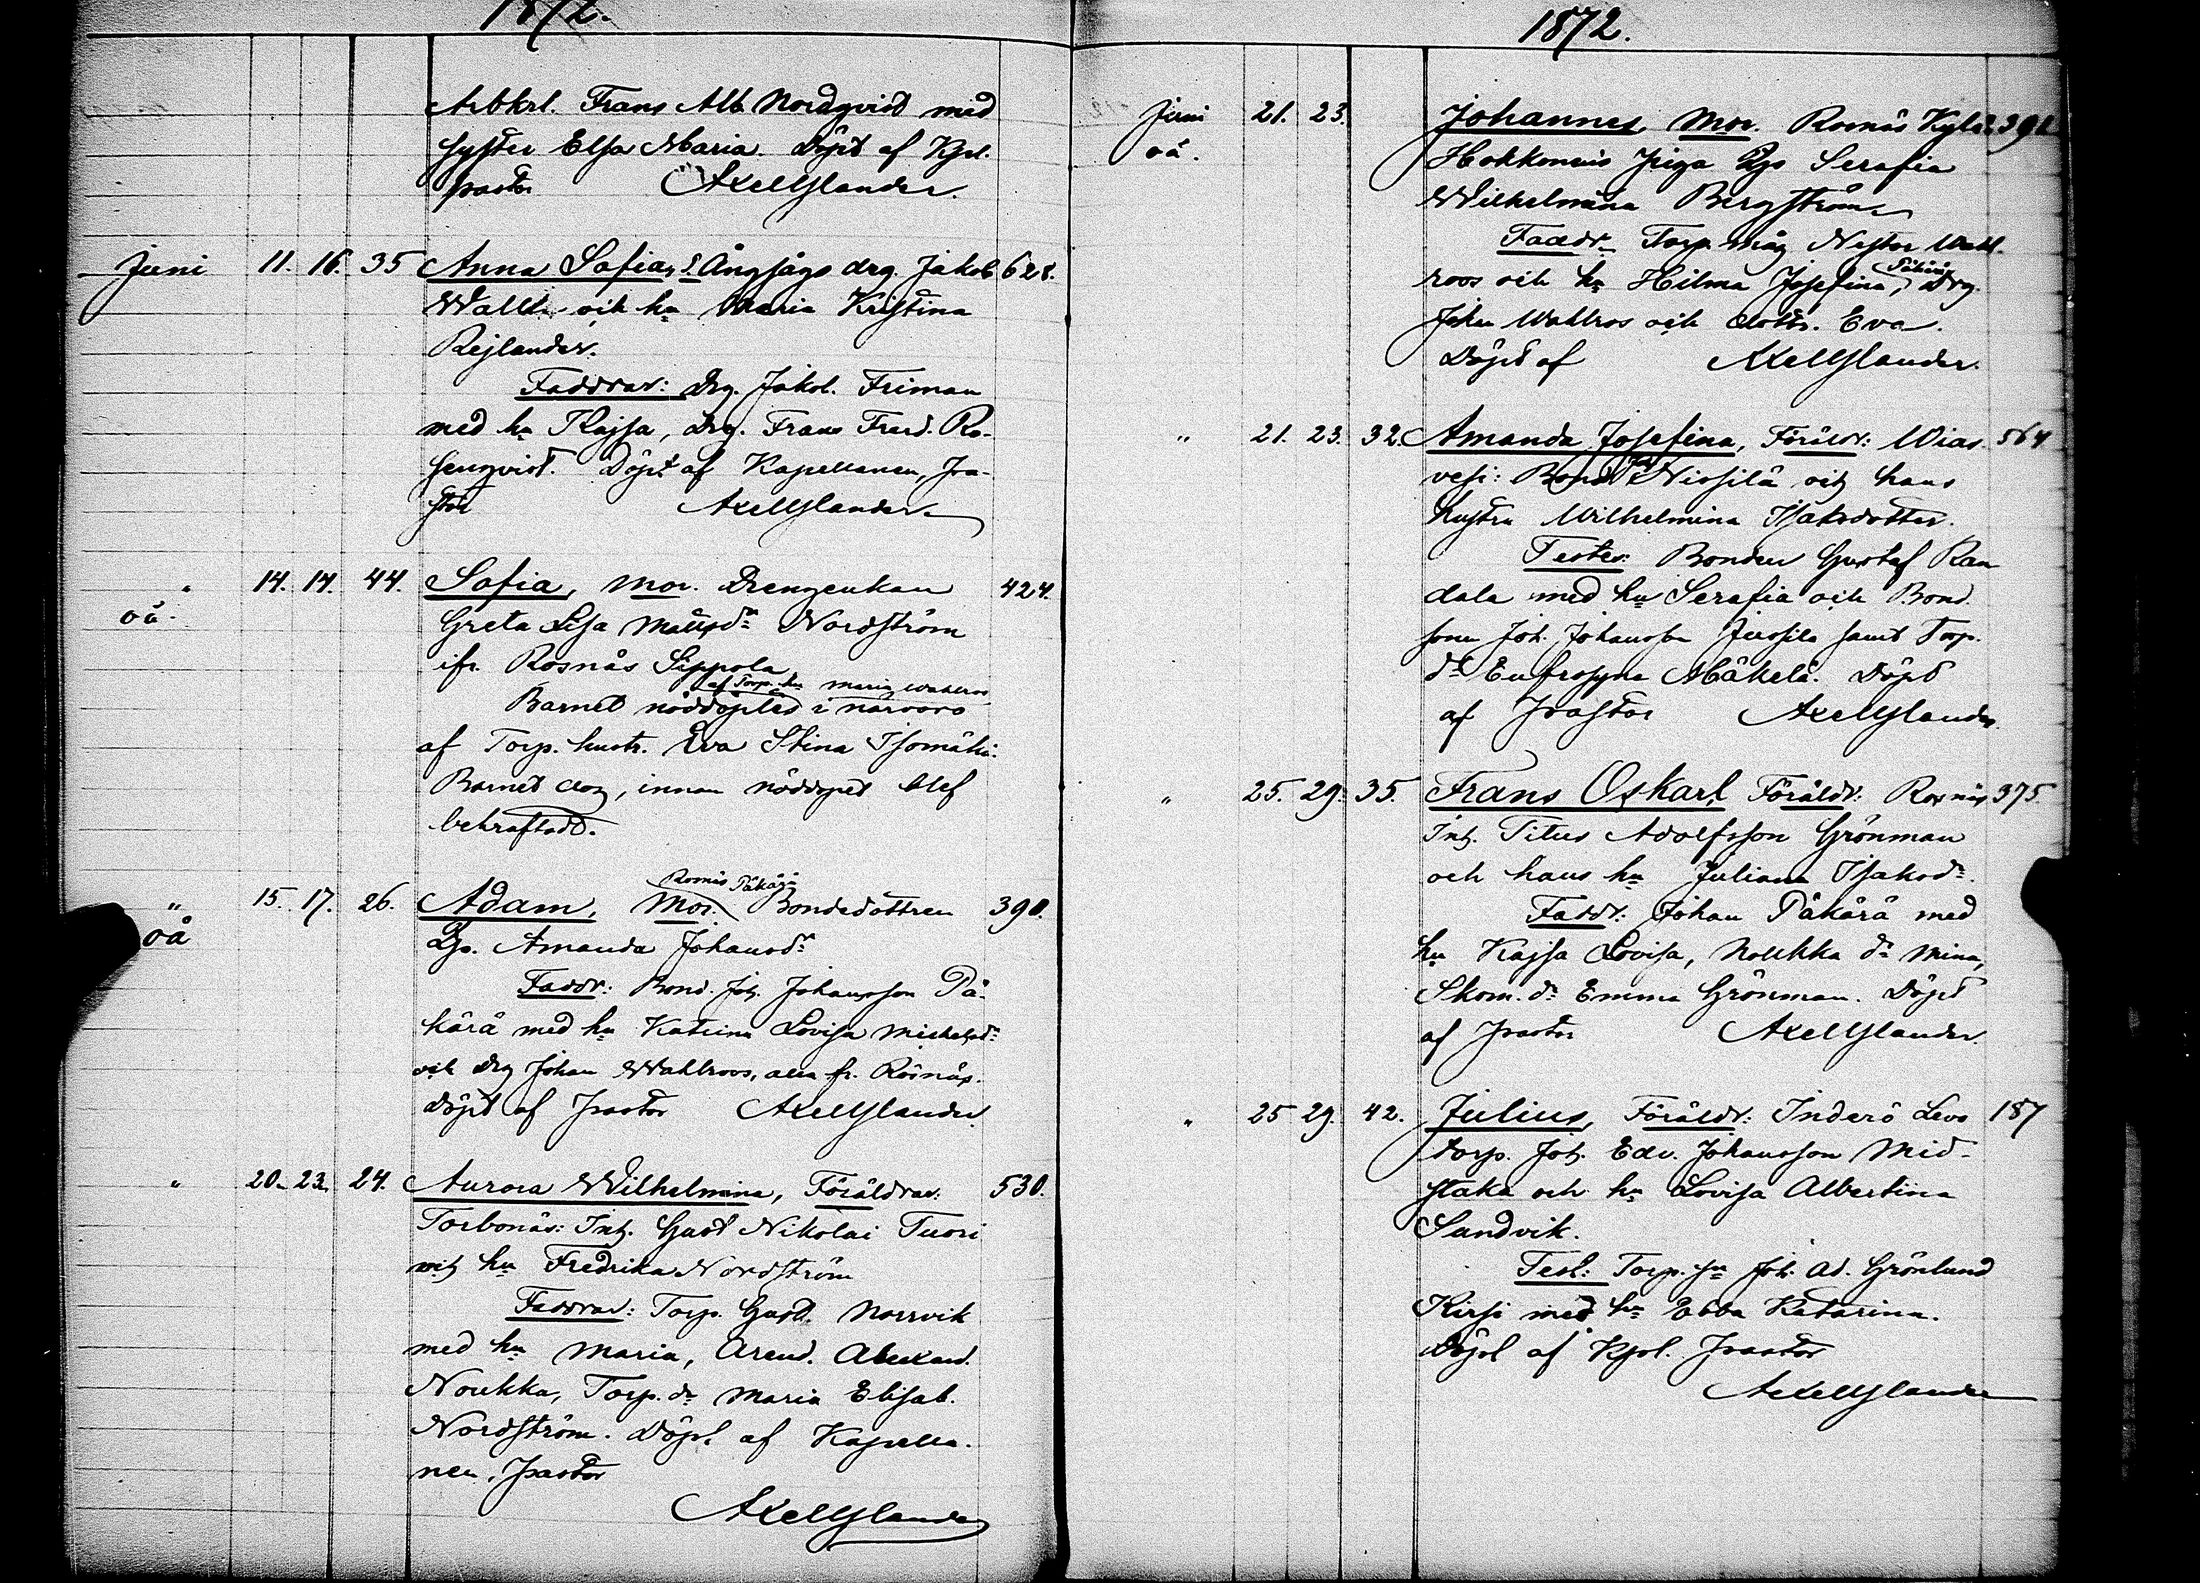 1872.
Arbkrl. Frans Alb. Nordqvist med
syster Elsa Maria. Döpt af Kpl.
pastor Axel Ylander.
Juni 11. 16. 35 Anna Sofia, Ångsågs drg. Jakob 628.
Wallt och hu Maria Kristina
Rejlander.
Faddrar: Drg. Jakob Friman
med hu Kajsa, Drg. Frans Fred. Ro-
senqvist. Döpt af Kapellanen, Pa-
stor Axel Ylander.
" 14. 14. 44. Sofia, Mor. Drengenkan 424.
oä. Greta Lisa Mattsdr Nordström
ifr. Rosnäs Sippola
af Torp. hu Maria Wahlroos
Barnet nöddöptes i närvaro
af Torp. hustr. Eva Stina Isomäki.
Barnet dog, innan nöddopet blef
bekräftadt.
Rosnäs Päkärä
" 15. 17. 26. Adam, Mor. Bondedottren 390.
oä Lps. Amanda Johansdr
Faddr: Bond. Joh. Johansson Pä-
kärä med hu Katrina Lovisa Michelsdr
och drg Johan Wahlroos, alla fr. Rosnäs.
Döpt af Pastor Axel Ylander
" 20. 23. 24. Aurora Wilhelmina, Föräldrar: 530.
Torbonäs: Inh. Gust Nikolai Tuori
och hu Fredrika Nordström
Faddrar: Torp. Gust. Norrvik
med hu Maria, Arend. Alexand.
Noukka, Torp. dr Maria Elisab.
Nordström. Döpt af Kapella-
nen, Pastor
Axel Ylander
1872.
Juni 21. 23. Johannes, Mor. Rosnäs Kylä 391
oä. Hokkoneuis piga Lps Serafia
Wilhelmina Bergström
Faddr. Torp. måg Nestor Wahl-
roos och hu Hilma Josefina, Päkärä Drg.
Johan Wahlroos och dottr. Eva.
Döpt af Axel Ylander.
" 21. 23. 32. Amanda Josefina, Föräldr: Wias- 564
vesi: Bond. Niosilä och hans
hustru Wilhelmina Isaksdotter.
Testes: Bonden Gustaf Ran
dala med hu Serafia och Bond.
sonen Joh. Johansson Jussila samt Torp.
dr Eufrosyna Mäkelä. Döpt
af Pastor Axel Ylander.
" 25. 29. 35. Frans Oskar, Föräldr: Rosnäs 375.
Inh. Titus Adolfsson Grönman
och hans hu Juliana Isaksdr.
Faddr: Johan Päkärä med
hu Kajsa Lovisa, Noukka dr Mina,
Skom. dr Emma Grönman. Döpt
af Pastor Axel Ylander.
" 25 29. 42. Julius, Föräldr: Inderö Levo 187
torp. Joh. Edv. Johansson Mid-
staka och hu Lovisa Albertina
Sandvik.
Test: Torp. sn Joh. Ad. Grönlund
Kirsi med hu Ebba Katarina.
Döpt af Kpl. Pastor
Axel Ylander